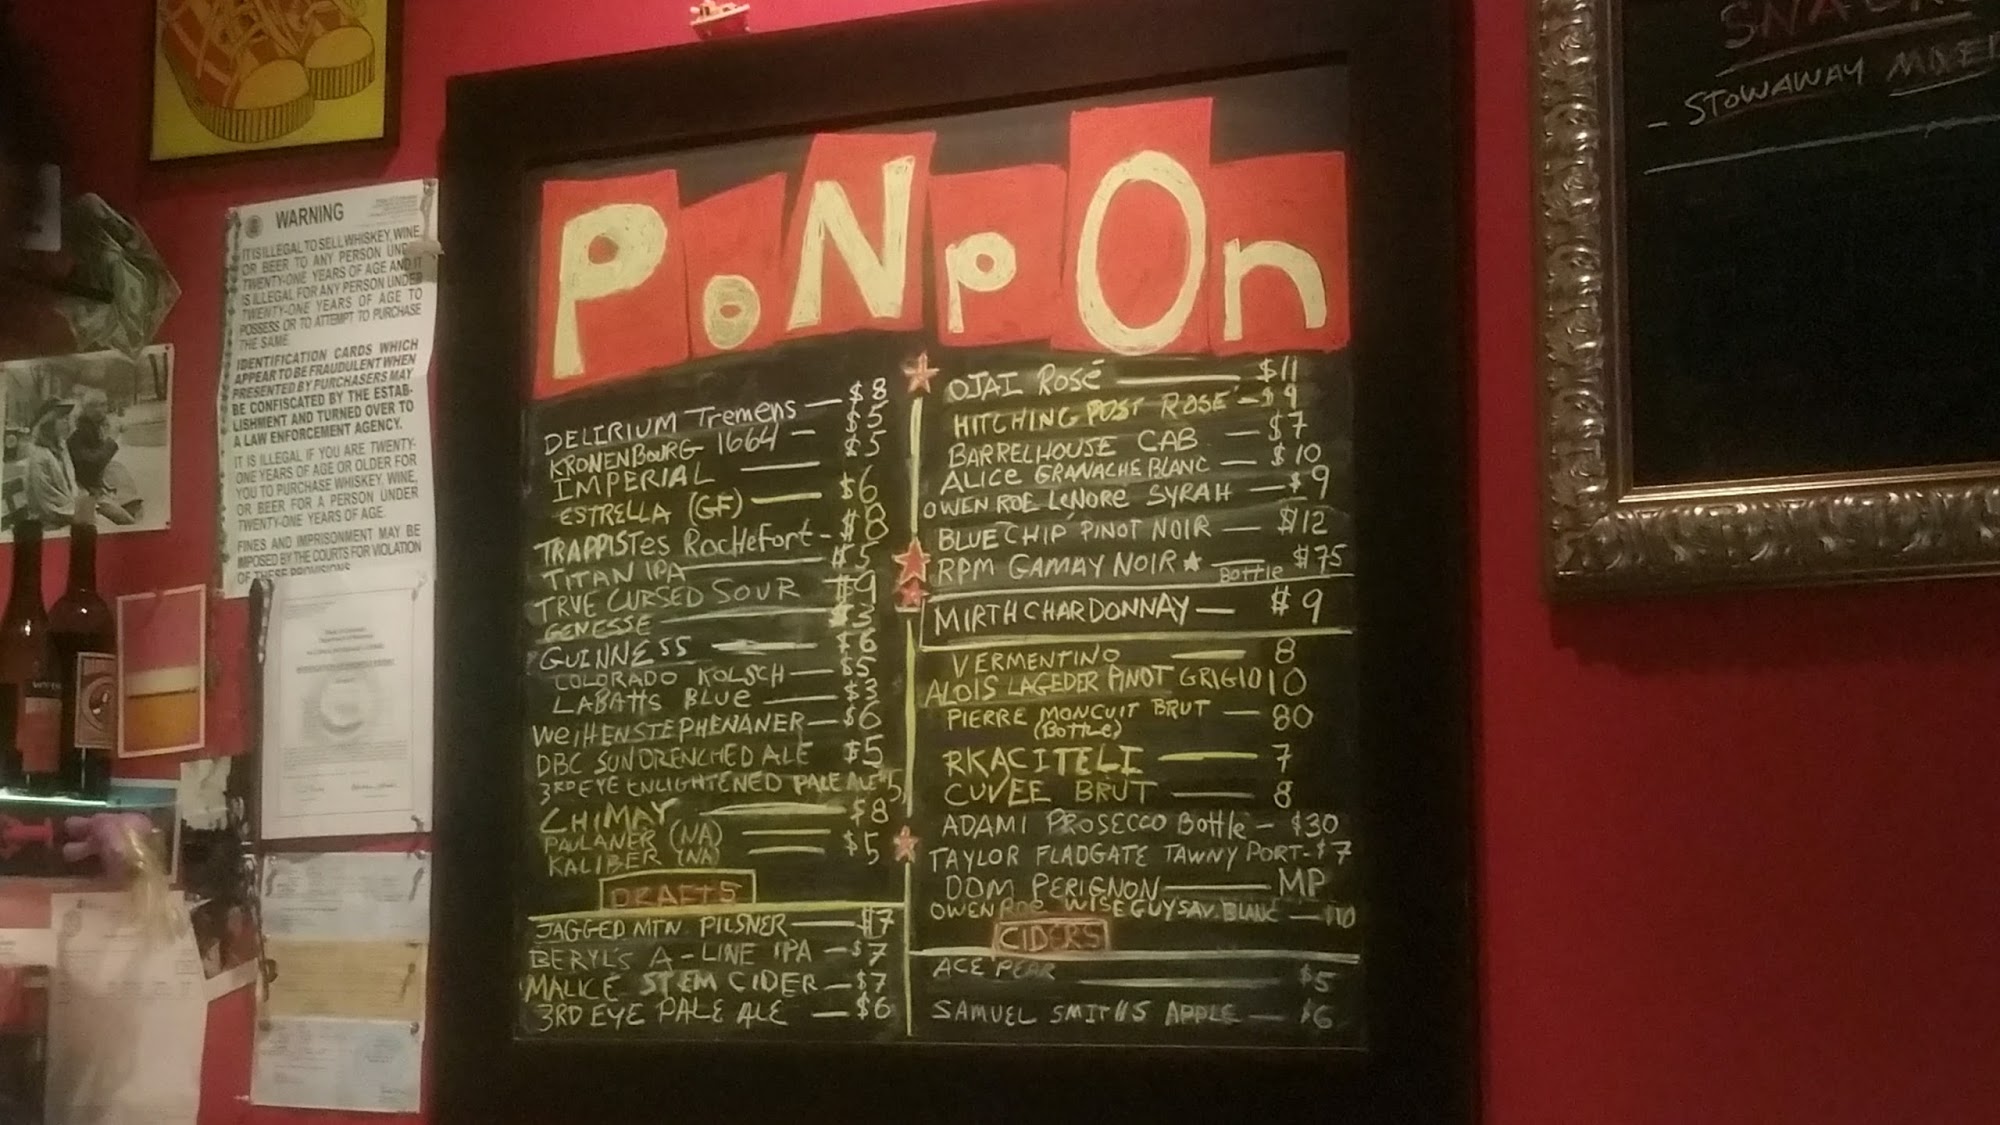 WARNING
IT IS ILLEGAL TO SELL WHISKEY, WINE,
OR BEER TO ANY PERSON UNDER
TWENTY-ONE YEARS OF AGE AND IT
IS ILLEGAL FOR ANY PERSON UNDER
TWENTY-ONE YEARS OF AGE TO
POSSESS OR TO ATTEMPT TO PURCHASE
THE SAME.
IDENTIFICATION CARDS WHICH
APPEAR TO BE FRAUDULENT WHEN
PRESENTED BY PURCHASERS MAY
BE CONFISCATED BY THE ESTAB-
LISHMENT AND TURNED OVER TO
A LAW ENFORCEMENT AGENCY.
IT IS ILLEGAL IF YOU ARE TWENTY-
ONE YEARS OF AGE OR OLDER FOR
YOU TO PURCHASE WHISKEY, WINE,
OR BEER FOR A PERSON UNDER
TWENTY-ONE YEARS OF AGE.
FINES AND IMPRISONMENT MAY BE
IMPOSED BY THE COURTS FOR VIOLATION
OF THESE PROVISIONS
PoNpOn
DELIRIUM Tremens — $8
KRONENBOURG 1664 — $5
IMPERIAL — $5
ESTRELLA (GF) — $6
TRAPPISTes RocHeforT - $8
TITAN IPA — $5
TRVE CURSED SOUR $9
GENESSE — $3
GUINNESS — $6
COLORADO KOLSCH — $5
LABATTS BLUe — $3
WeiHENSTEPHENANER — $6
DBC SUNDRENCHED ALE $5
3RD EYE ENLIGHTENED PALE ALE $5
CHIMAY — $8
PAULANER (NA) —
KALIBER (NA) — $5
DRAFTS
JAGGED MTN. PILSNER — $7
BERYL'S A-LINE IPA — $7
MALICE STEM CIDER — $7
3RD EYE PALE ALE — $6
OJAI ROSÉ — $11
HITCHING POST ROSE — $9
BARRELHOUSE CAB — $7
ALICE GRANACHE BLANC — $10
OWEN ROE LENORE SYRAH — $9
BLUE CHIP PINOT NOIR — $12
RPM GAMAY NOIR ★ Bottle $75
MIRTH CHARDONNAY — $9
VERMENTINO — 8
ALOIS LAGEDER PINOT GRIGIO 10
PIERRE MONCUIT BRUT — 80
(BoTTLe)
RKACITELI — 7
CUVEE BRUT — 8
ADAMI PROSECCO BoTTle - $30
TAYLOR FLADGATE TAWNY PORT - $7
DOM PERIGNON — MP
OWEN ROE WISEGUY SAV. BLANC — $10
CIDERS
ACE PEAR $5
SAMUEL SMITHS APPLE — $6
- STOWAWAY